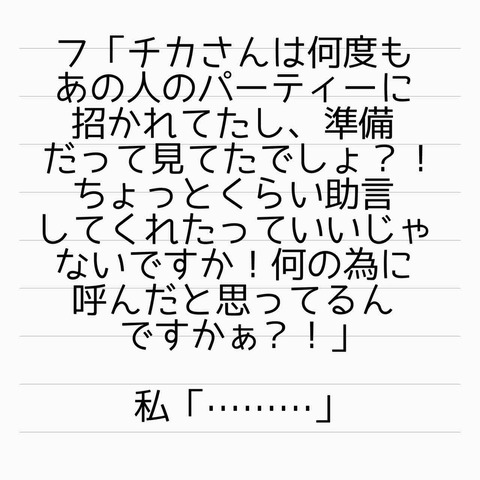 フ「チカさんは何度も
あの人のパーティーに
招かれてたし、準備
だって見てたでしょ？！
ちょっとくらい助言
してくれたっていいじゃ
ないですか！何の為に
呼んだと思ってるん
ですかぁ？！」
私「………」